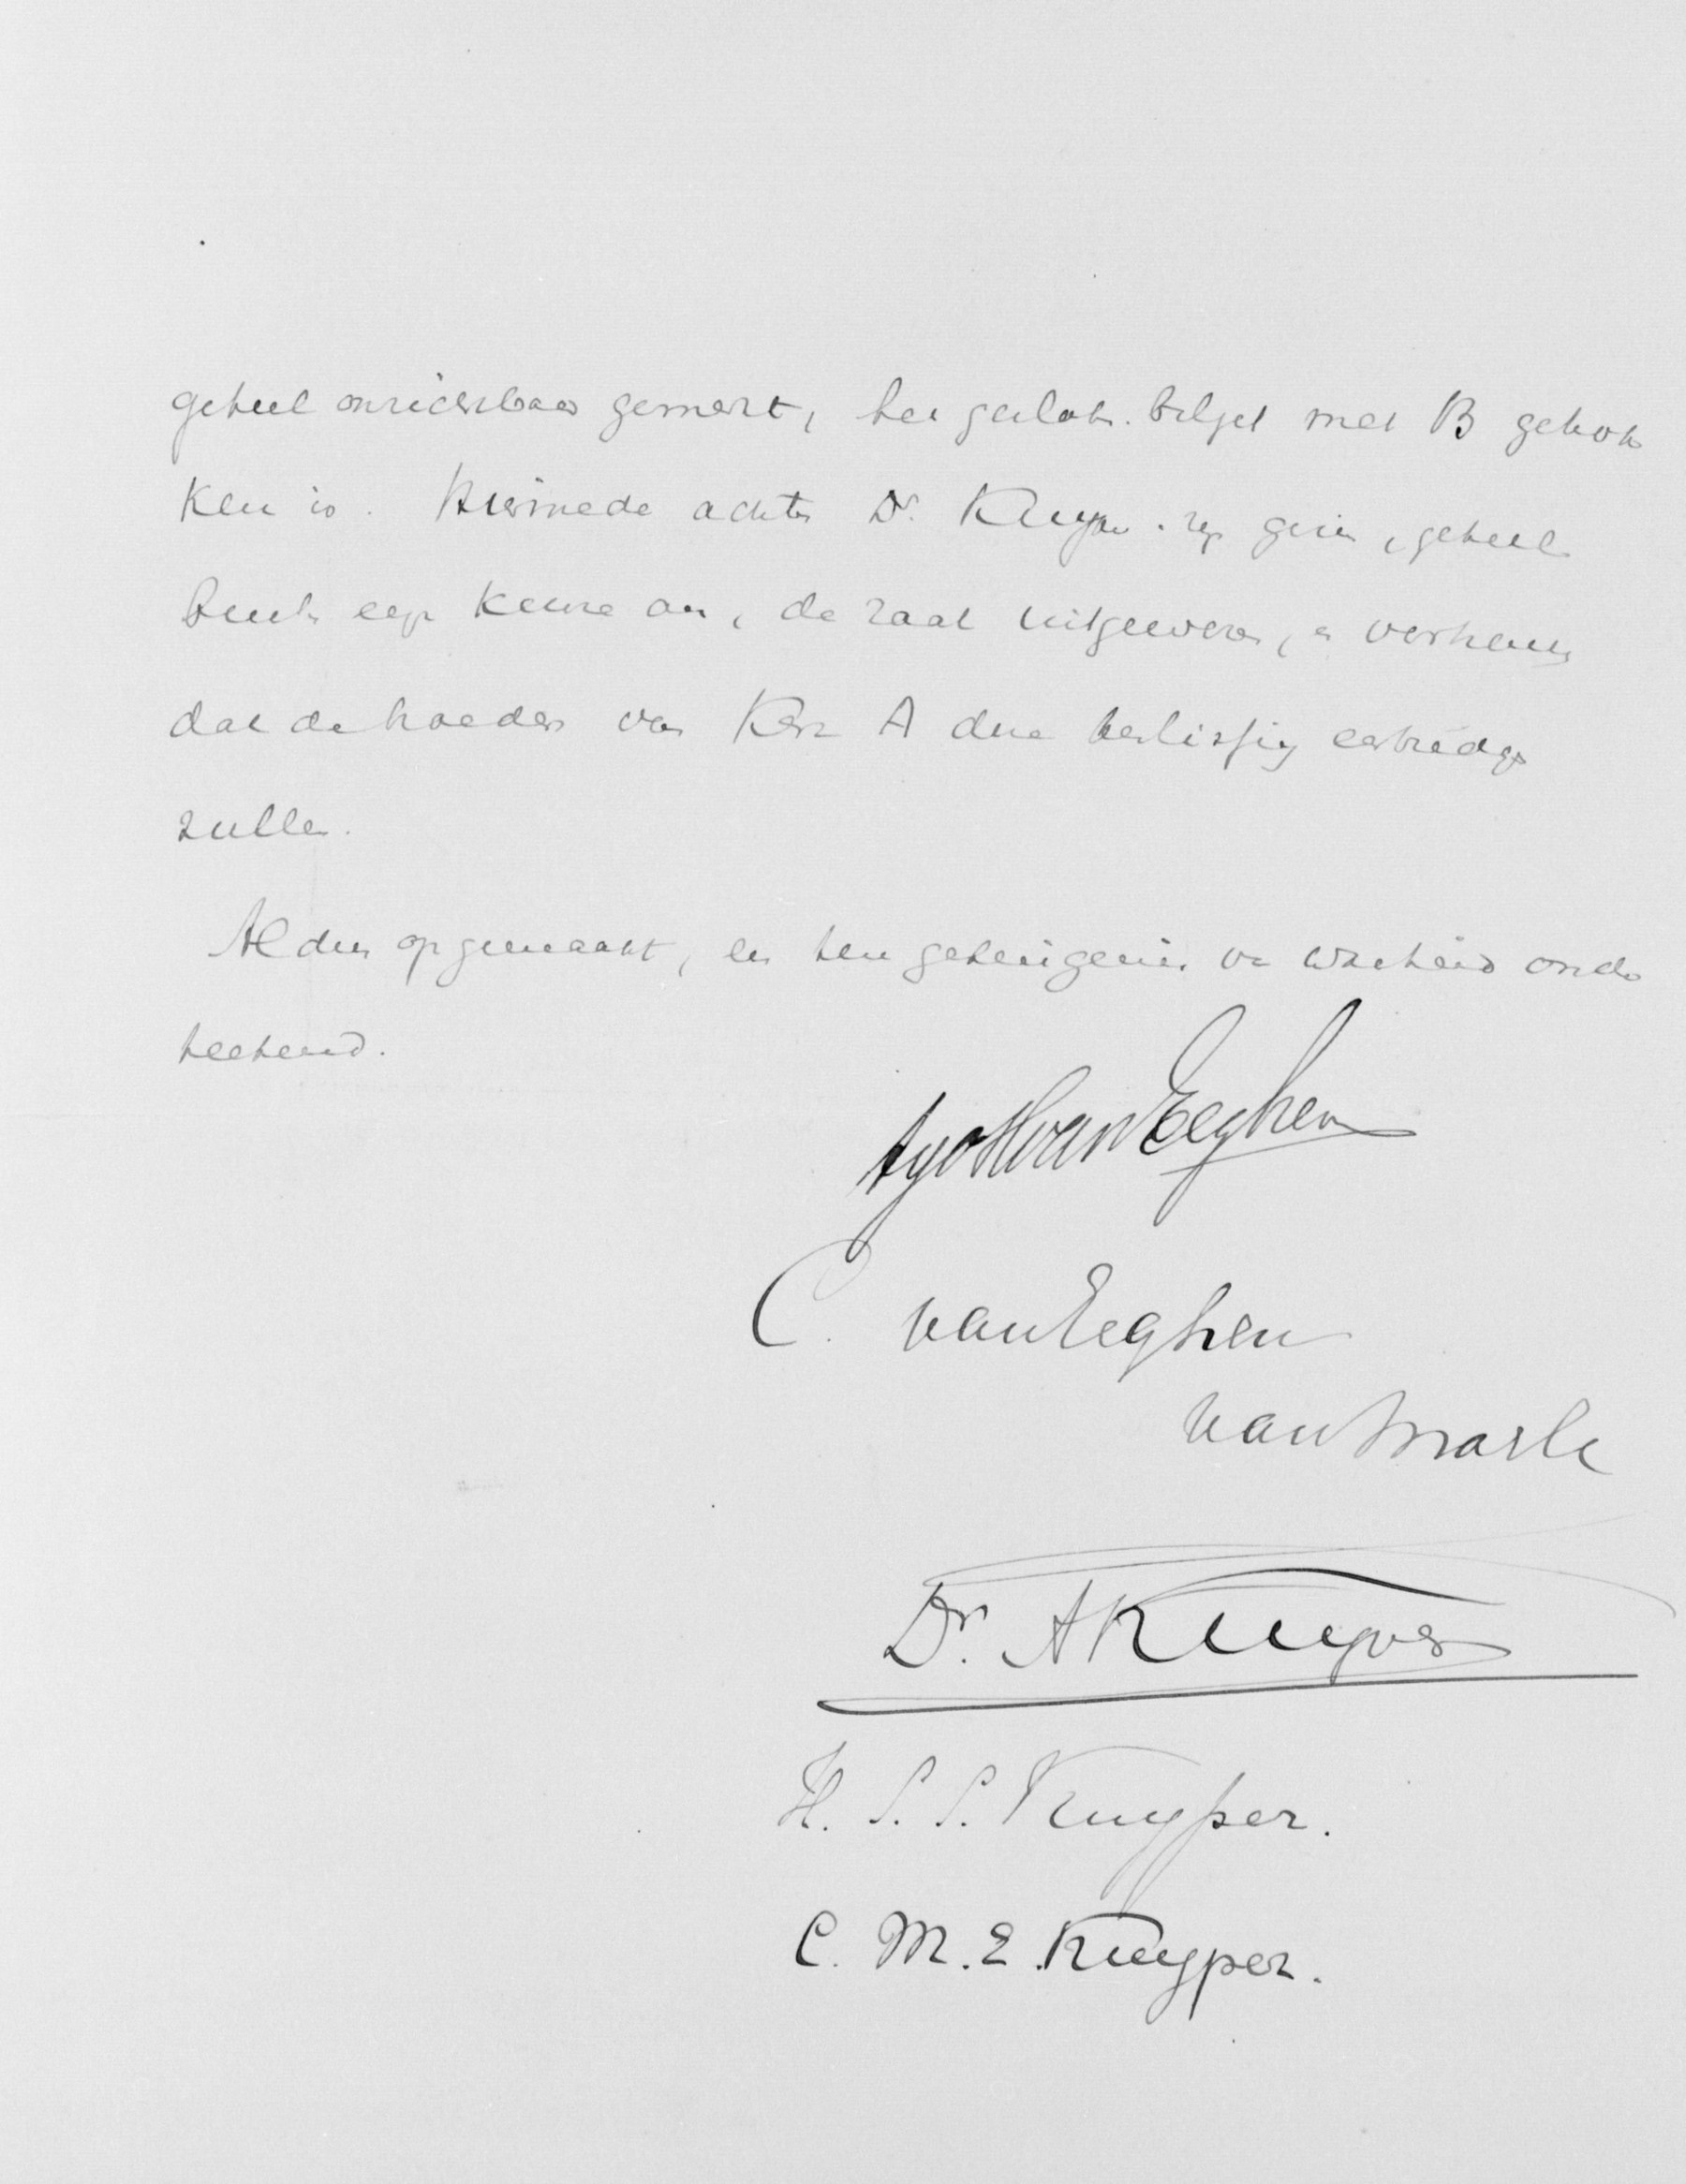 geheel onzichtbaar gemerkt, het gesloten biljet met B getrok
ken is. Hiermede achten Dr. Kuyper en zijn gezin, geheel
buiten eigen keuze om, de zaak uitgewezen, en vertrouwen
dat de hoeders van Kas A deze beslissing eerbiedigen
zullen.
Aldus opgemaakt, en ten getuigenis van waarheid onder
teekend.
van Eeghen
C. van Eeghen
van Marle
Dr. A Kuyper
H. S. S. Kuyper.
C. M. E. Kuyper.